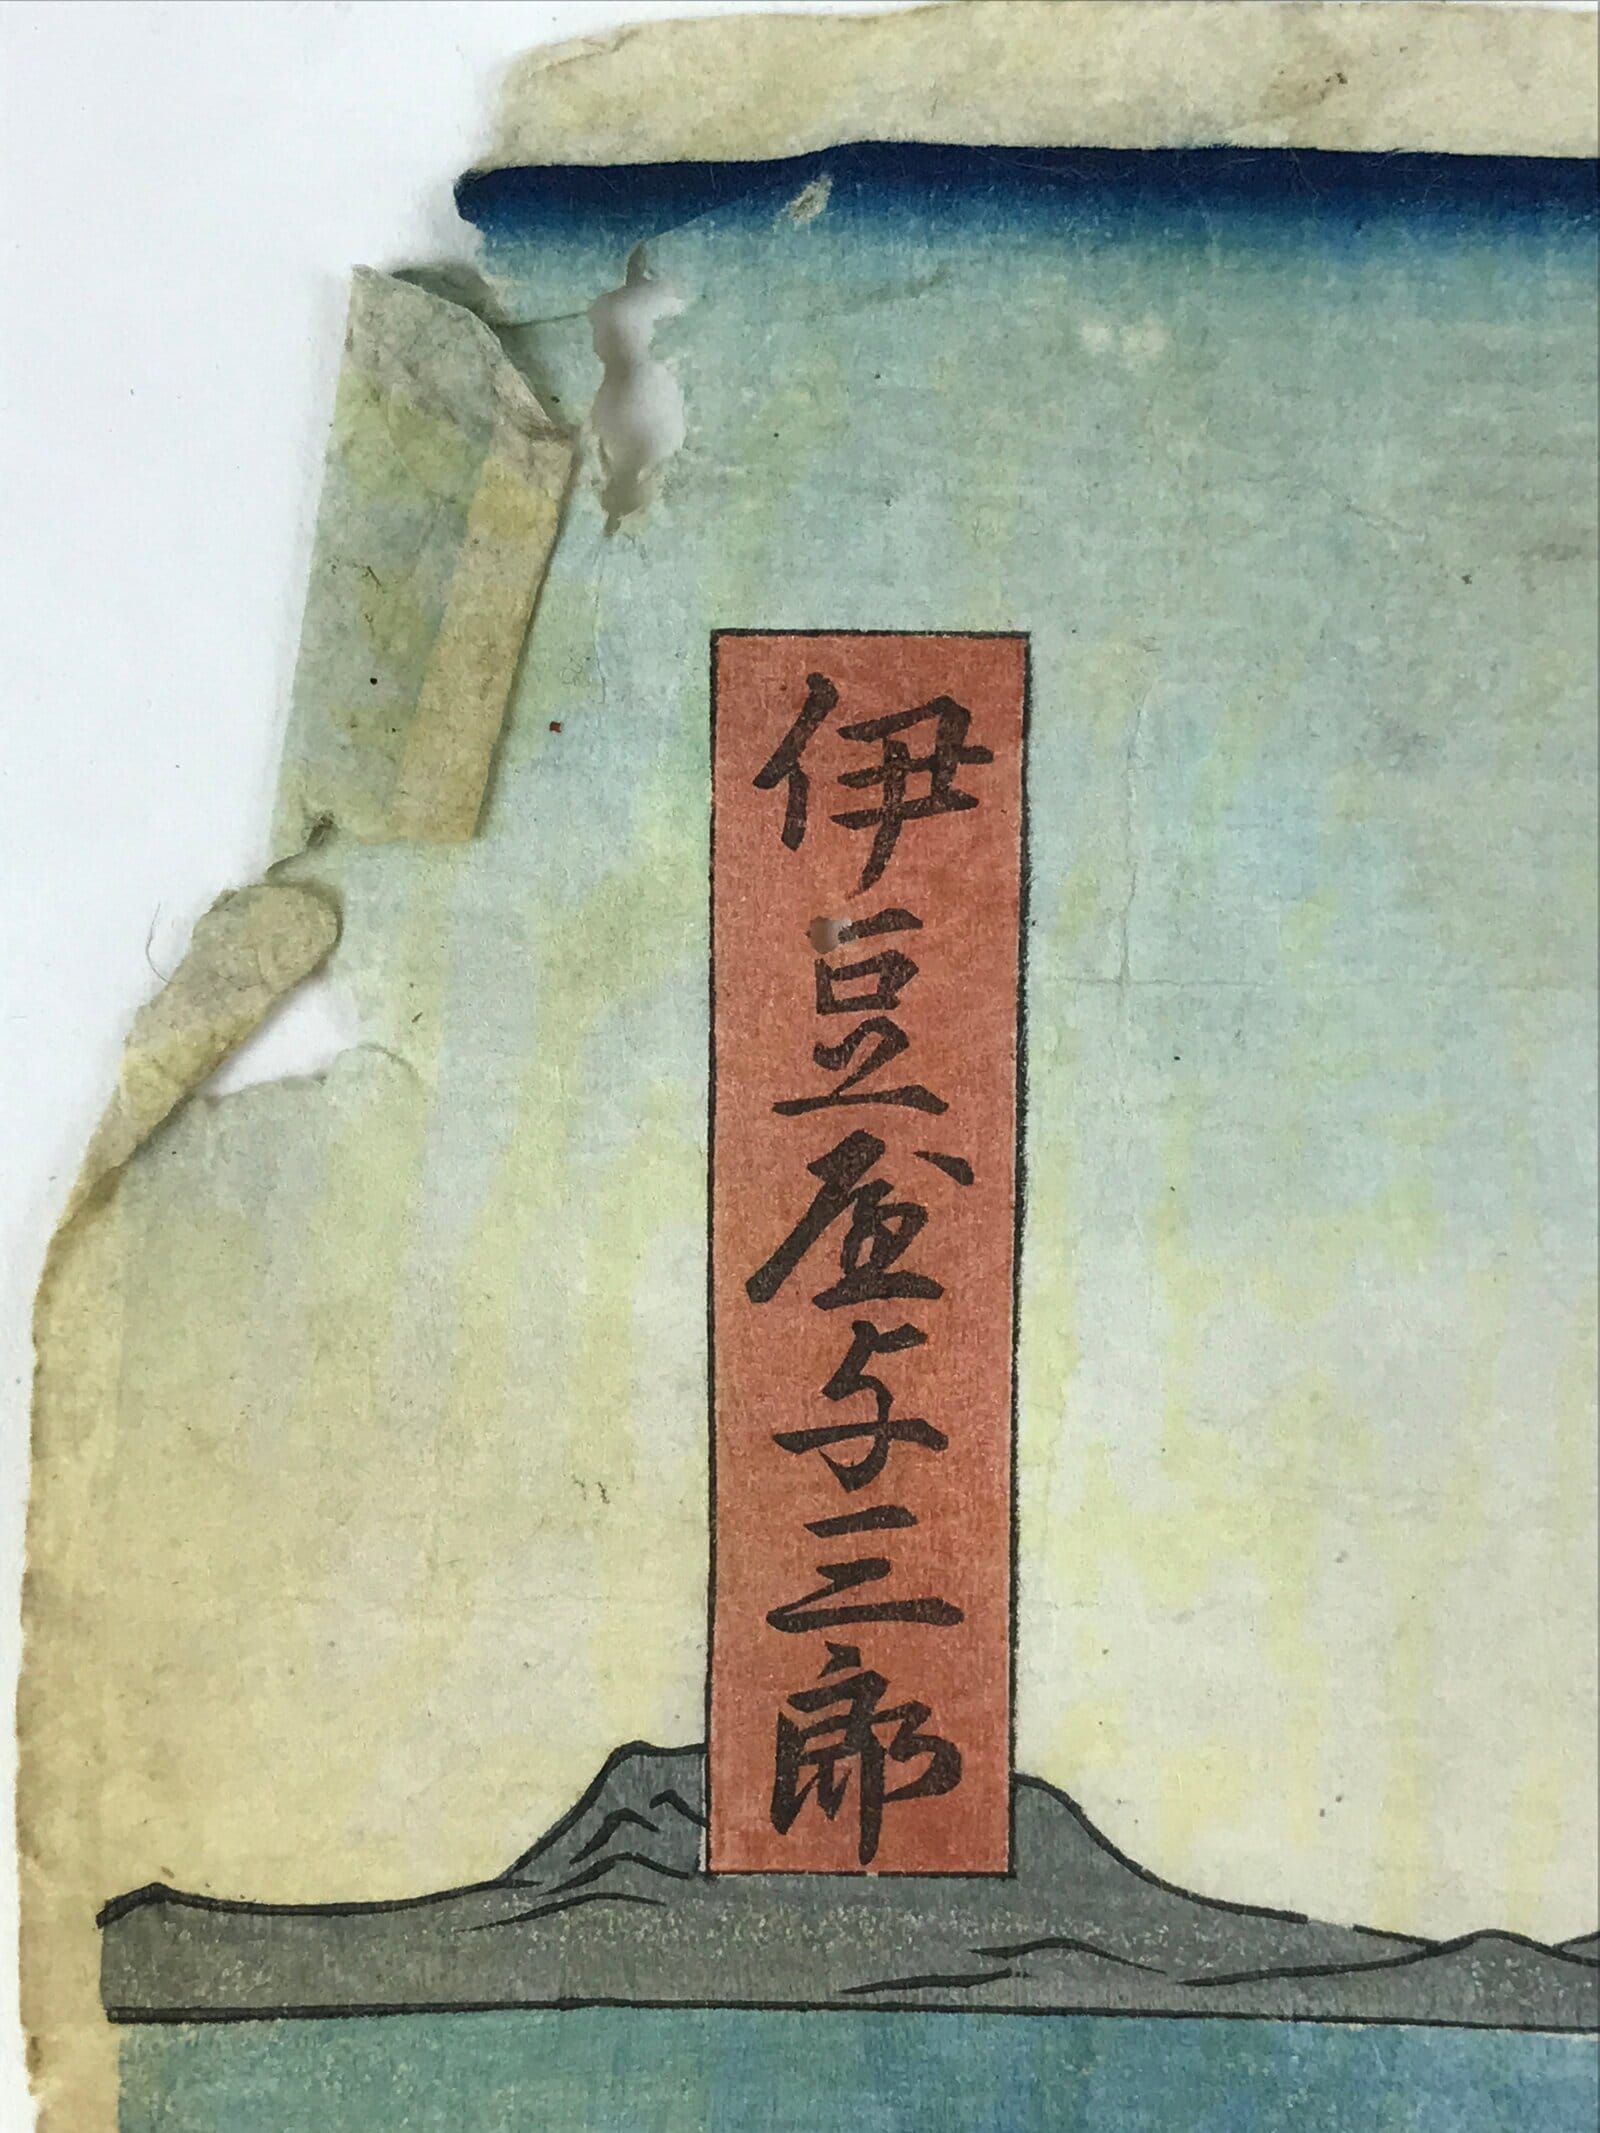 伊豆屋与三郎